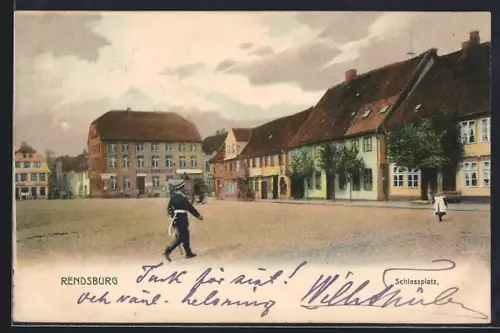 RENDSBURG
Schlossplatz.
Tack för sist!
och vänl. helsning